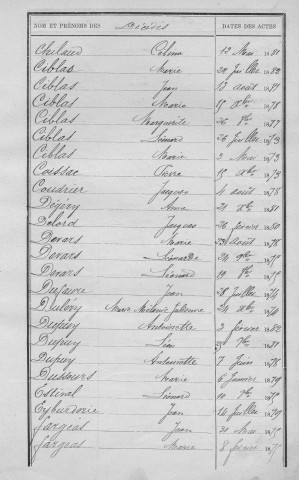 NOM ET PRÉNOMS DES Décédés DATES DES ACTES
Chulaud Célina 12 Mai 1881
Ciblas Marie 20 Juillet 1882
Ciblas Jean 13 août 1881
Ciblas Marie 15 Xbre 1878
Ciblas Marguerite 26 1877
Ciblas Léonard 26 Juillet 1873
Ciblas Marie 2 Mai 1873
Coissac Pierre 15 Xbre 1873
Coudrier Jacques 4 août 1878
Déjéry Anna 21 Xbre 1881
Delord Jacques 26 février 1880
Devars Marie 23 août 1878
Devars Léonarde 24 9bre 1875
Devars Léonard 19 1875
Dufaure Jean 28 Juillet 1874
Duléry Marie Mélanie 24 Xbre 1880
Dupuy Antoinette 2 février 1882
Dupuy Léon 1881
Dupuy Antoinette 7 Juin 1878
Dussours Marie 6 Janvier 1879
Estinal Léonard 10 1875
Eyburderie Jean 16 Juillet 1879
Fargeas Jean 31 Mai 1875
Fargeas Marie 8 février 1875